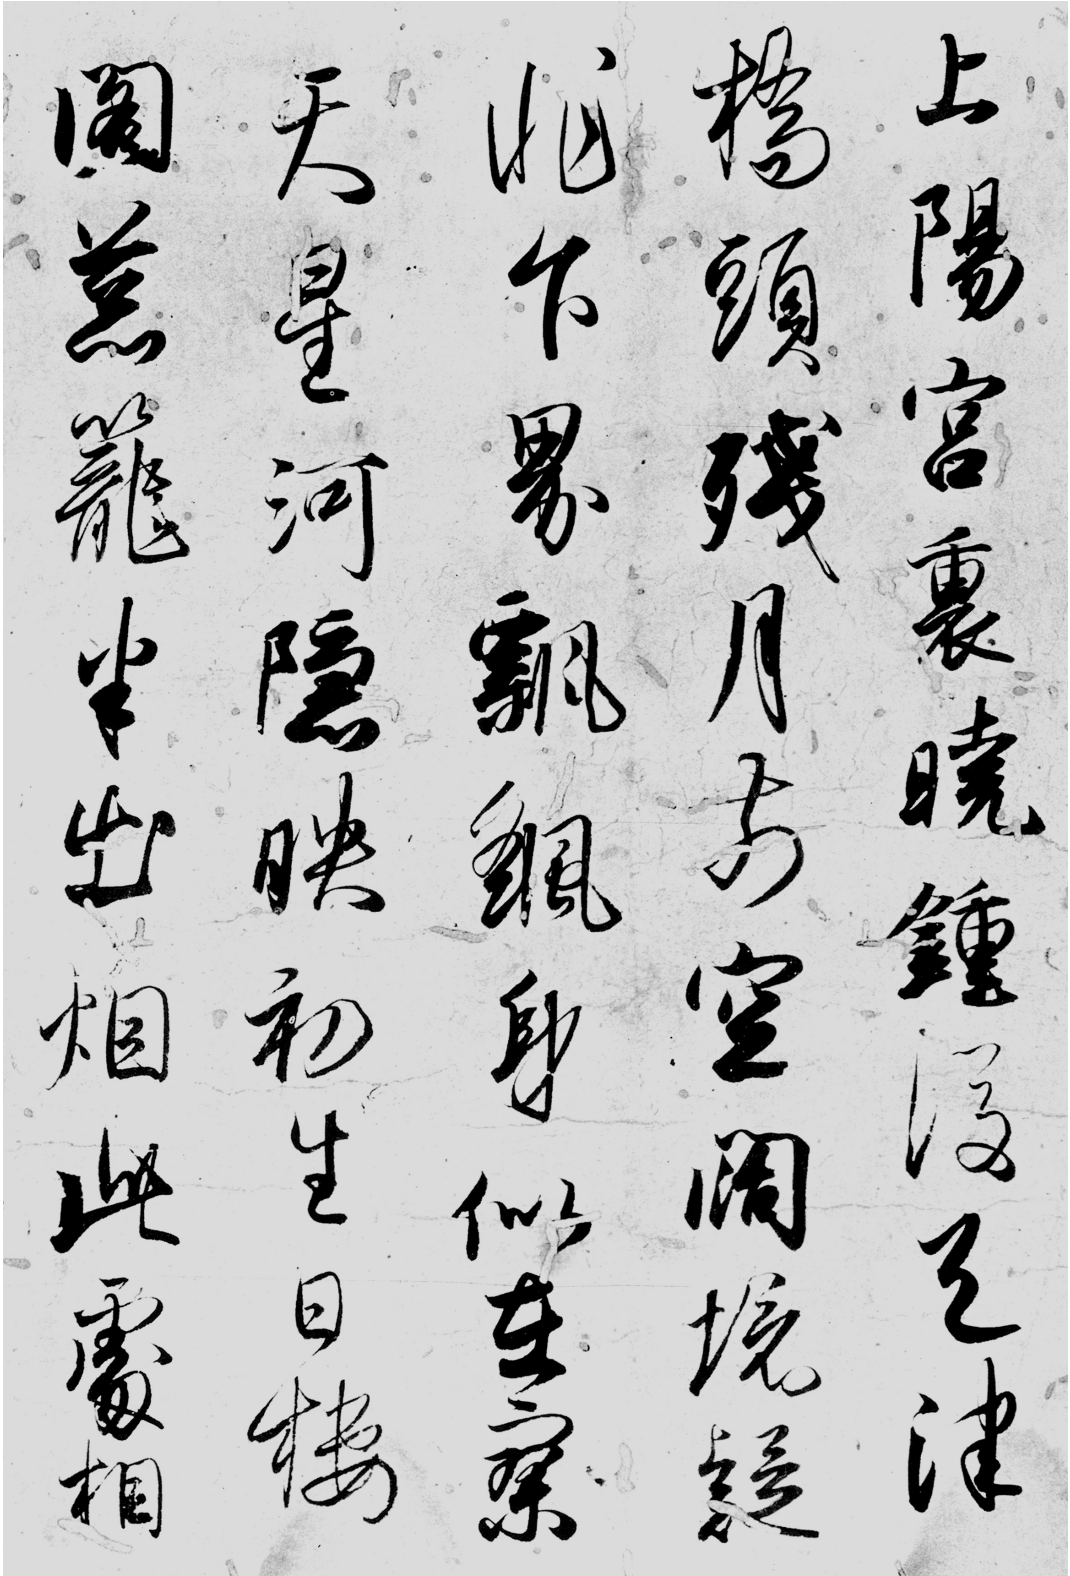 上陽宮裏曉鍾後天津
橋頭殘月前空闊境疑
非下界飄飖身似在寥
天星河隱映初生日樓
閣葱籠半出烟此處相